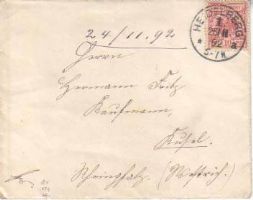 24/11.92
HEIDELBERG
5-7N
Herrn
Hermann Fritz
Kaufmann,
Kusel.
Rheinpfalz. (Westrich).